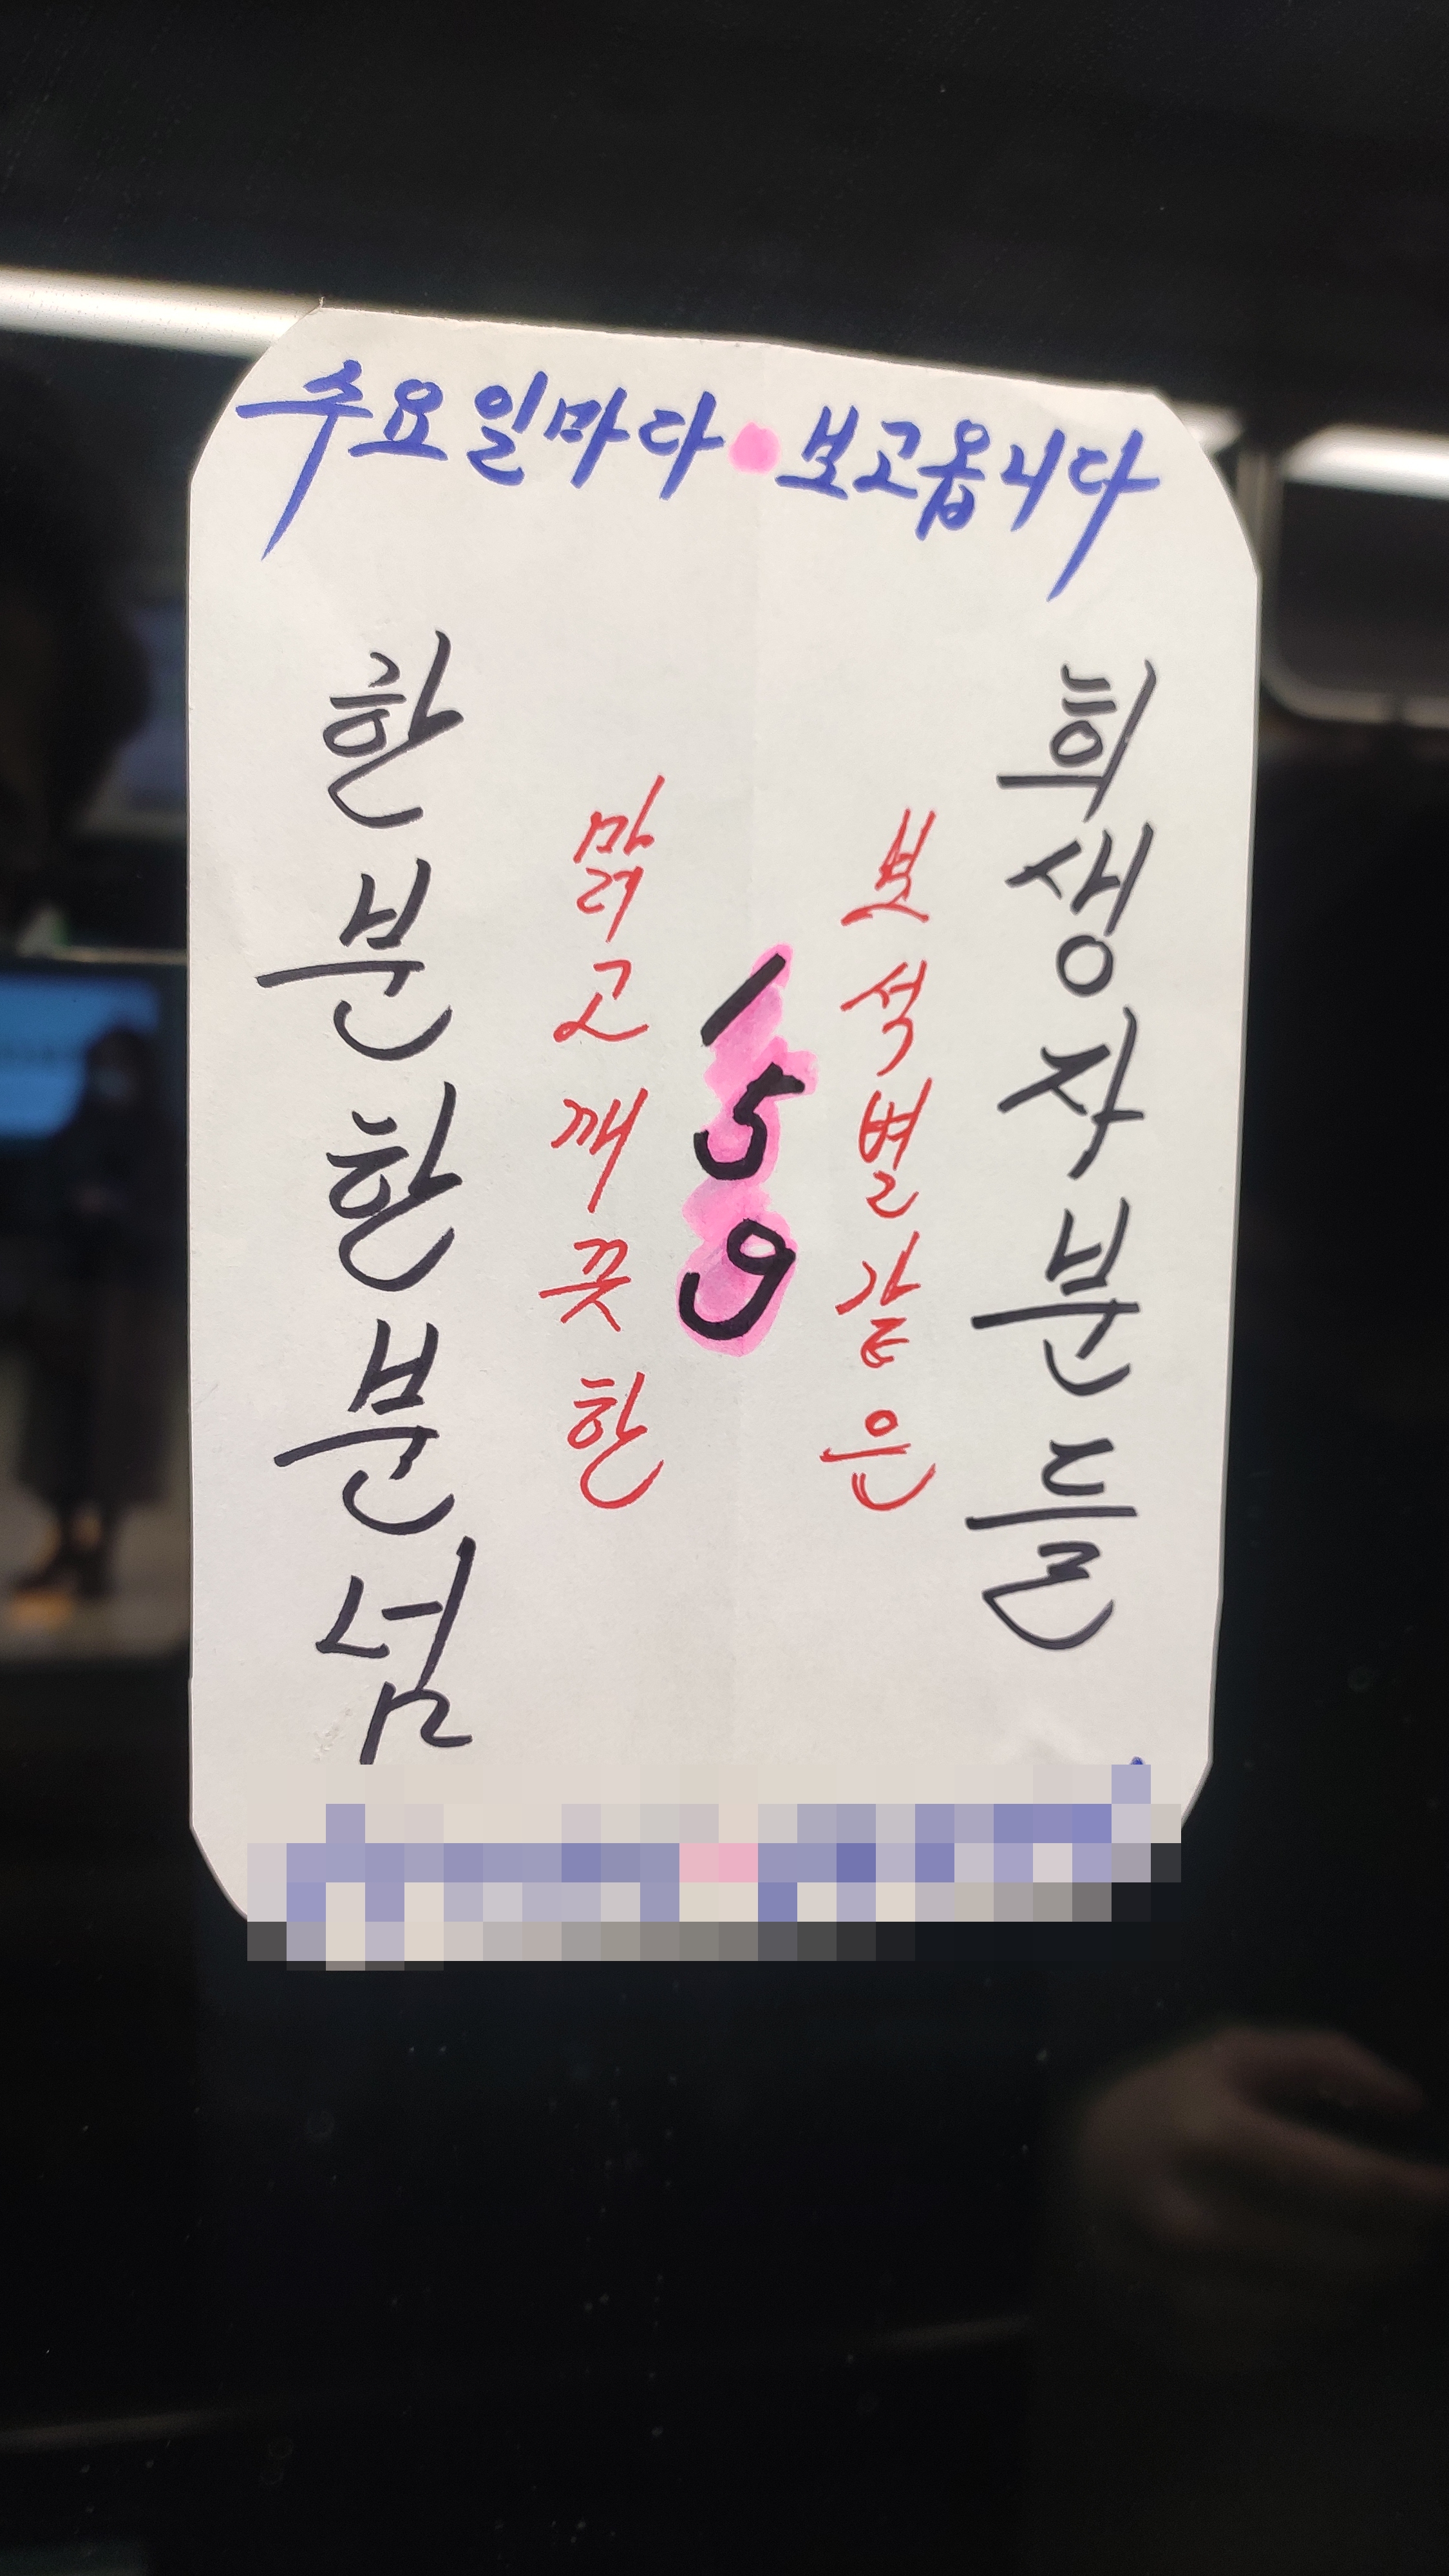 수요일마다 보고옵니다
희생자분들
보석별같은
159
맑고깨끗한
한분한분넘